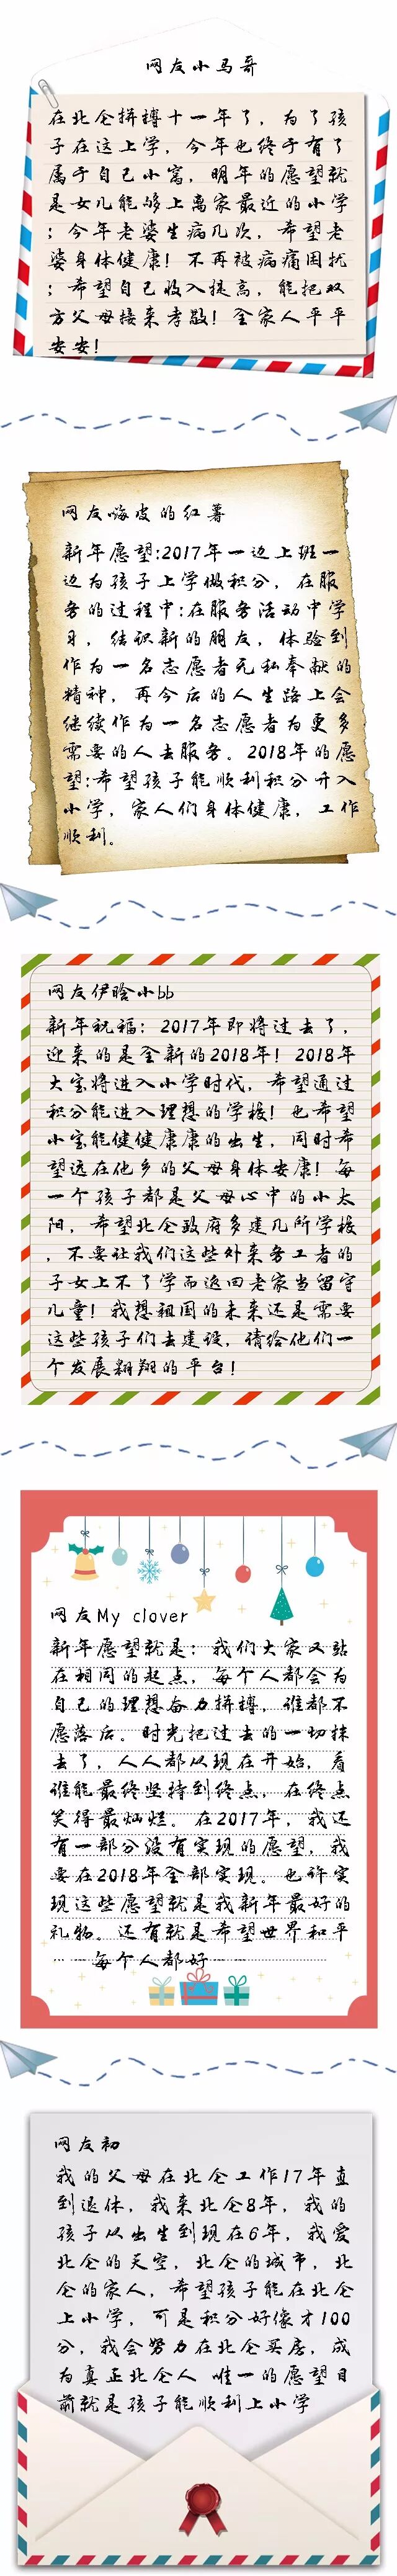 网友小马哥
在北仑拼搏十一年了，为了孩
子在这上学，今年也终于有了
属于自己小窝，明年的愿望就
是女儿能够上离家最近的小学
；今年老婆生病几次，希望老
婆身体健康！不再被病痛困扰
；希望自己收入提高，能把双
方父母接来孝敬！全家人平平
安安！
网友嗨皮的红薯
新年愿望:2017年一边上班一
边为孩子上学做积分，在服
务的过程中:在服务活动中学
习，结识新的朋友，体验到
作为一名志愿者无私奉献的
精神，再今后的人生路上会
继续作为一名志愿者为更多
需要的人去服务。2018年的愿
望:希望孩子能顺利积分升入
小学，家人们身体健康，工作
顺利。
网友伊晗小bb
新年祝福：2017年即将过去了，
迎来的是全新的2018年！2018年
大宝将进入小学时代，希望通过
积分能进入理想的学校！也希望
小宝能健健康康的出生，同时希
望远在他乡的父母身体安康！每
一个孩子都是父母心中的小太
阳，希望北仑政府多建几所学校
，不要让我们这些外来务工者的
子女上不了学而返回老家当留守
儿童！我想祖国的未来还是需要
这些孩子们去建设，请给他们一
个发展翱翔的平台！
网友My clover
新年愿望就是：我们大家又站
在相同的起点，每个人都会为
自己的理想奋力拼搏，谁都不
愿落后。时光把过去的一切抹
去了，人人都从现在开始，看
谁能最终坚持到终点，在终点
笑得最灿烂。在2017年，我还
有一部分没有实现的愿望，我
要在2018年全部实现。也许实
现这些愿望就是我新年最好的
礼物。还有就是希望世界和平
……每个人都好……
网友初
我的父母在北仑工作17年直
到退休，我来北仑8年，我的
孩子从出生到现在6年，我爱
北仑的天空，北仑的城市，北
仑的家人，希望孩子能在北仑
上小学，可是积分好像才100
分，我会努力在北仑买房，成
为真正北仑人 唯一的愿望目
前就是孩子能顺利上小学